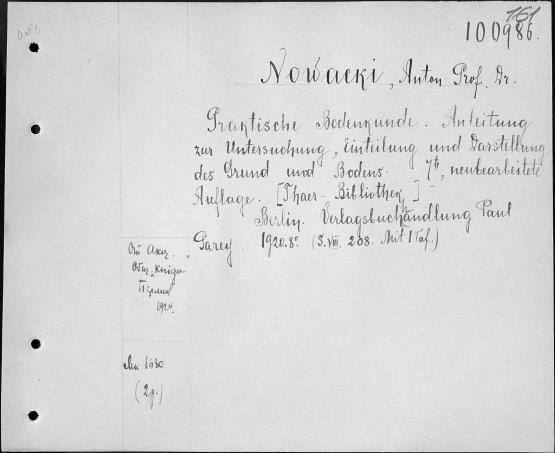 161
100986.
Nowacki, Anton Prof. Dr.
Praktische Bodenkunde. Anleitung
zur Untersuchung, Einteilung und Darstellung
des Grund und Bodens. 7te, neubearbeitete
Auflage. [Thaer-Bibliothek]
Berlin. Verlagsbuchhandlung Paul
Parey. 1920. 8° (S. VIII. 208. Mit 1 Taf.)
От Акц.
Общ. „Книга"
1924.
1630
(2 р.)